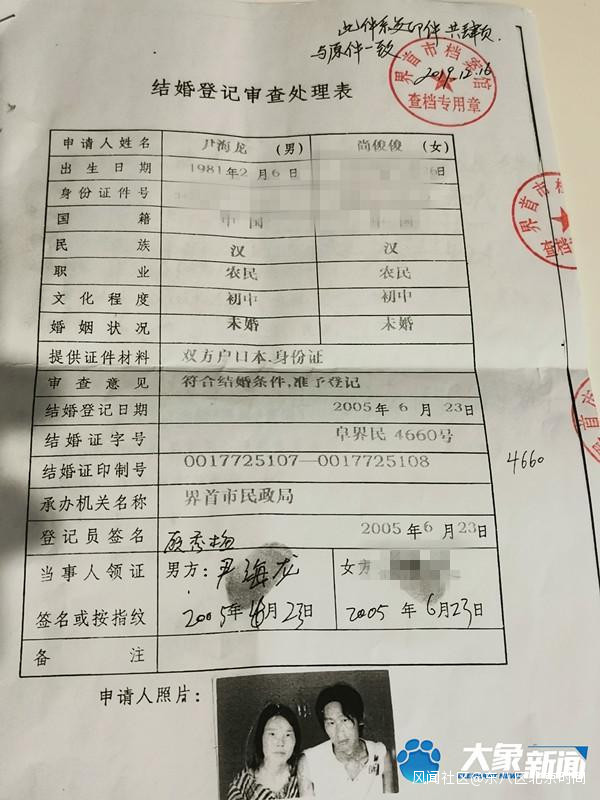 此件系复印件共肆页
与原件一致
2019.12.16
界首市档案馆
查档专用章
结婚登记审查处理表
申请人姓名 尹海龙 (男) 尚俊俊 (女)
出生日期 1981年2月6日 6日
身份证件号
国籍 中国 中国
民族 汉 汉
职业 农民 农民
文化程度 初中 初中
婚姻状况 未婚 未婚
提供证件材料 双方户口本.身份证
审查意见 符合结婚条件,准予登记
结婚登记日期 2005年6月23日
结婚证字号 阜界民4660号
结婚证印制号 0017725107—0017725108
4660
承办机关名称 界首市民政局
登记员签名 2005年6月23日
当事人领证 男方：尹海龙 女方
签名或按指纹 2005年6月23日 2005年6月23日
备注
申请人照片：
大象新闻
风闻社区@东八区北京时间